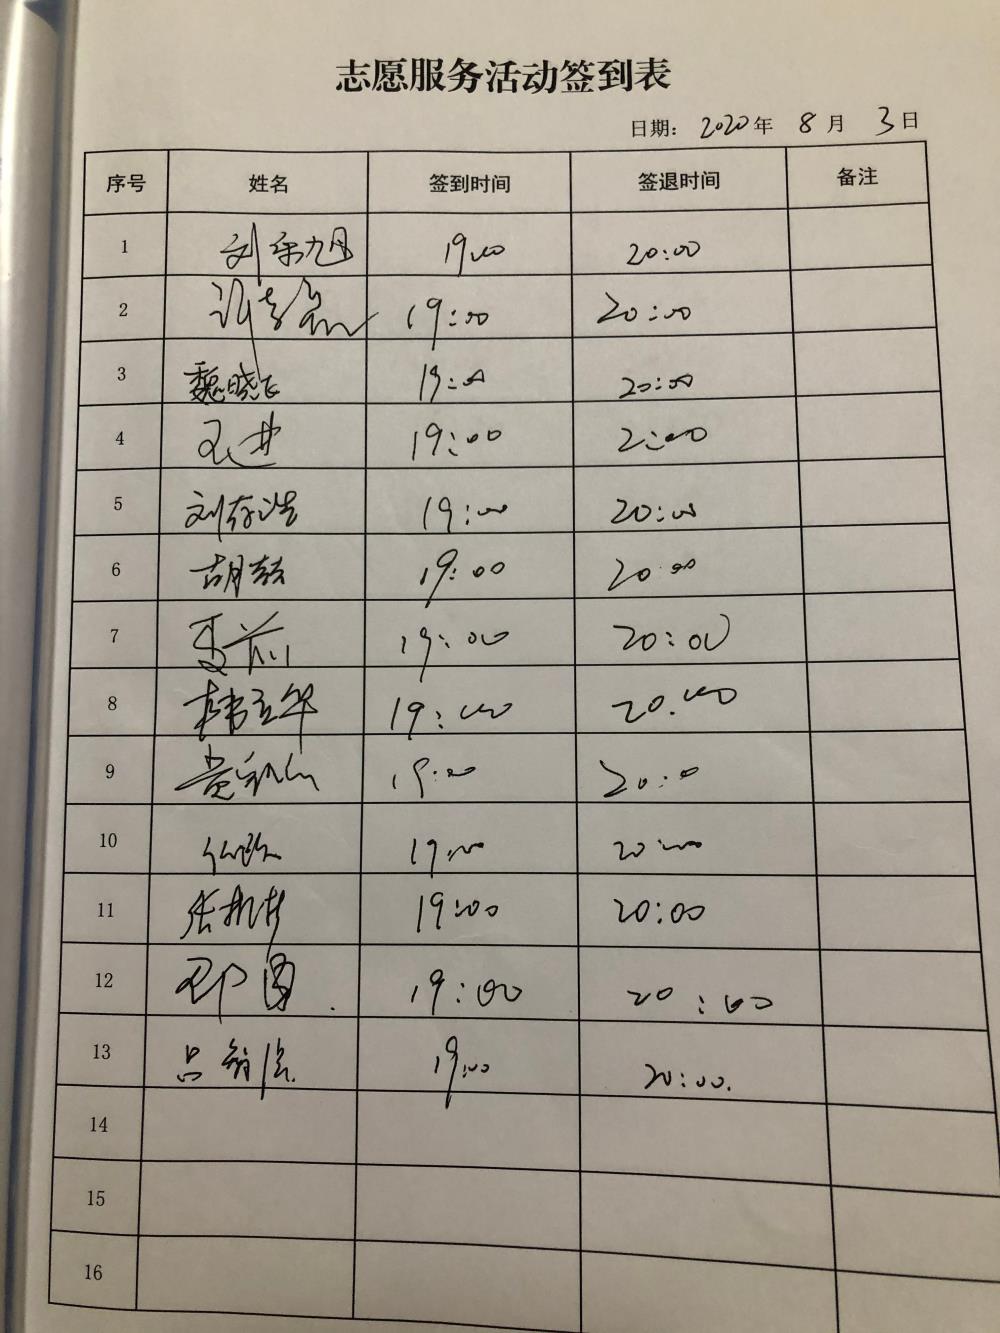 志愿服务活动签到表
日期： 2020 年 8 月 3 日
序号 姓名 签到时间 签退时间 备注
1 19:00 20:00
2 19:00 20:00
3 魏晓飞 19:00 20:00
4 王进 19:00 2:00
5 刘存浩 19:00 20:00
6 胡 19:00 20:00
7 夏前 19:00 20:00
8 韩立华 19:00 20:00
9 黄 19:00 20:0
10 19:00 20:00
11 张 19:00 20:00
12 19:00 20:00
13 吕 19:00 20:00.
14
15
16